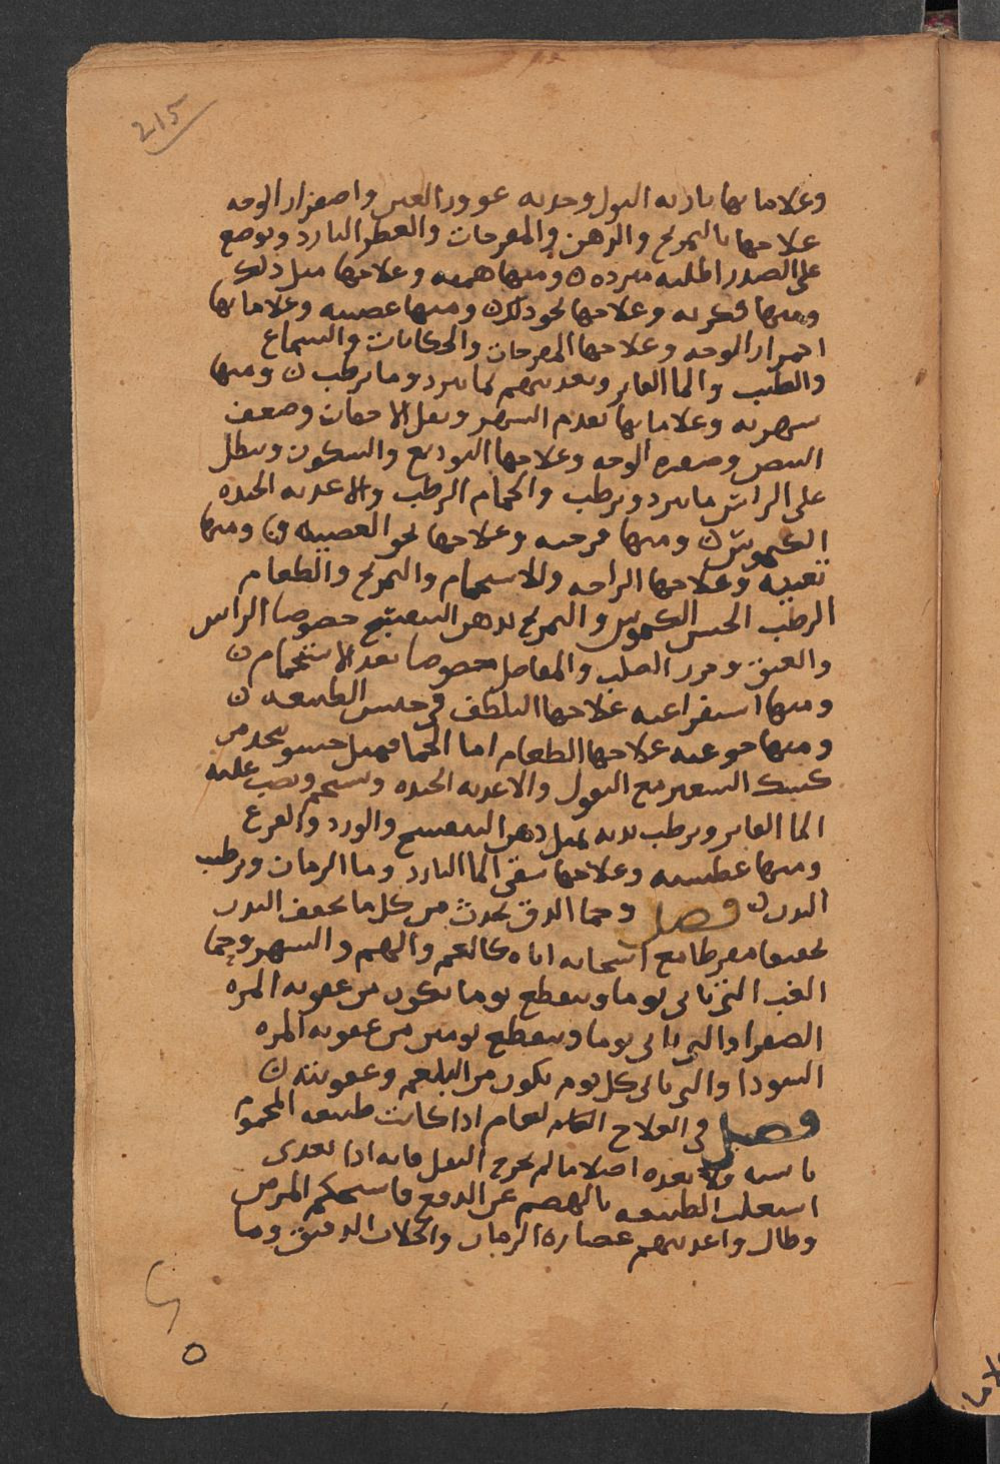 215
وعلاماتها نارية البول وحدته عوور العين واصفرار الوجه
علاجها بالتمريخ والدهن والمفرحات والعطر البارد ويوضع
على الصدر اطليه مبرده ن ومنها همية وعلاجها مثل ذلك
ومنها فكرية وعلاجها نحو ذلك ن ومنها عصبيه وعلاماتها
احمرار الوجه وعلاجها المفرحات والحكايات والسماع
والطيب والما الفاتر وتغديتهم بما يبرد وما يرطب ن ومنها
سهرية وعلاماتها تقدم السهر وثقل الاجفان وضعف
النبض وصفره الوجه وعلاجها التوديع والسكون وينطل
على الراس ما يبرد ويرطب والحمام الرطب والاغديه الجيده
الكيموس ن ومنها فرحيه وعلاجها نحو العصبيه ن ومنها
تعبيه وعلاجها الراحه والاستحمام والتمريخ والطعام
الرطب الحسن الكيموس والتمريخ بدهن البنفسج خصوصا الراس
والعنق وخرز الصلب والمفاصل خصوصا بعد الاستحمام ن
ومنها استفراغيه علاجها التلطف في حبس الطبيعه ن
ومنها جوعيه علاجها الطعام اما الحما فمثل حسو يتخد من
كشك الشعير مع البقول والاغديه الجيده ويستحم ويصب عليه
الما الفاتر ويرطب بدنه بمثل دهن البنفسج والورد والقرع
ومنها عطشيه وعلاجها سقى الما البارد وما الرمان ويرطب
البدن ن فصل وحما الدق يحدث من كل ما يجفف البدن
تجفيفا مفرطا مع اسخانه اياه كالغم والهم والسهر وحما
الغب التى تاتى يوما وينقطع يوما تكون من عفونه المره
الصفرا والتي تاتى يوما وينقطع يومين من عفونه المره
السودا والتي تاتى كل يوم تكون من البلغم وعفونته ن
فصل في العلاج العام اذا كانت طبيعه المحموم
يابسه فلا يغده اصلا ما لم يخرج الثفل فانه اذا تغدى
اشتغلت الطبيعه بالهضم عن الدفع فاستحكم المرض
وطال واغديتهم عصارة الرمان والجلاب الدقيق وما